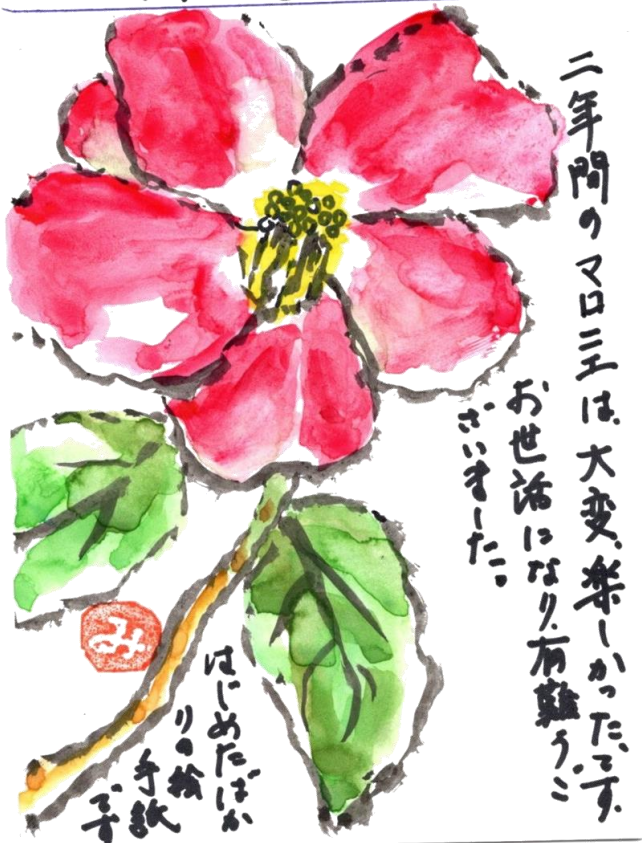 二年間のマロニエは、大変、楽しかった、です。
お世話になり、有難うご
ざいました。
はじめたばか
りの絵
手紙
です
み